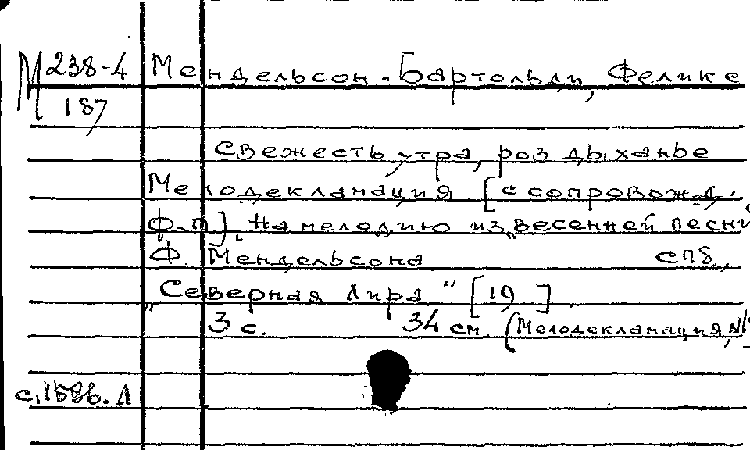 М 238-4 Мендельсон-Бартольди, Феликс
187
Свежесть утра, роз дыханье
Мелодекламация [с сопровожд.
ф.-п.]. На мелодию из „весенней песни
Ф. Мендельсона СПБ,
„Северная Лира" [19 ]
3 с. 34 см. (Мелодекламация, №
с.1586.Л